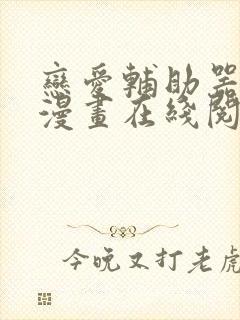 戀愛輔助器
漫畫在綫閱
今晚又打老虎